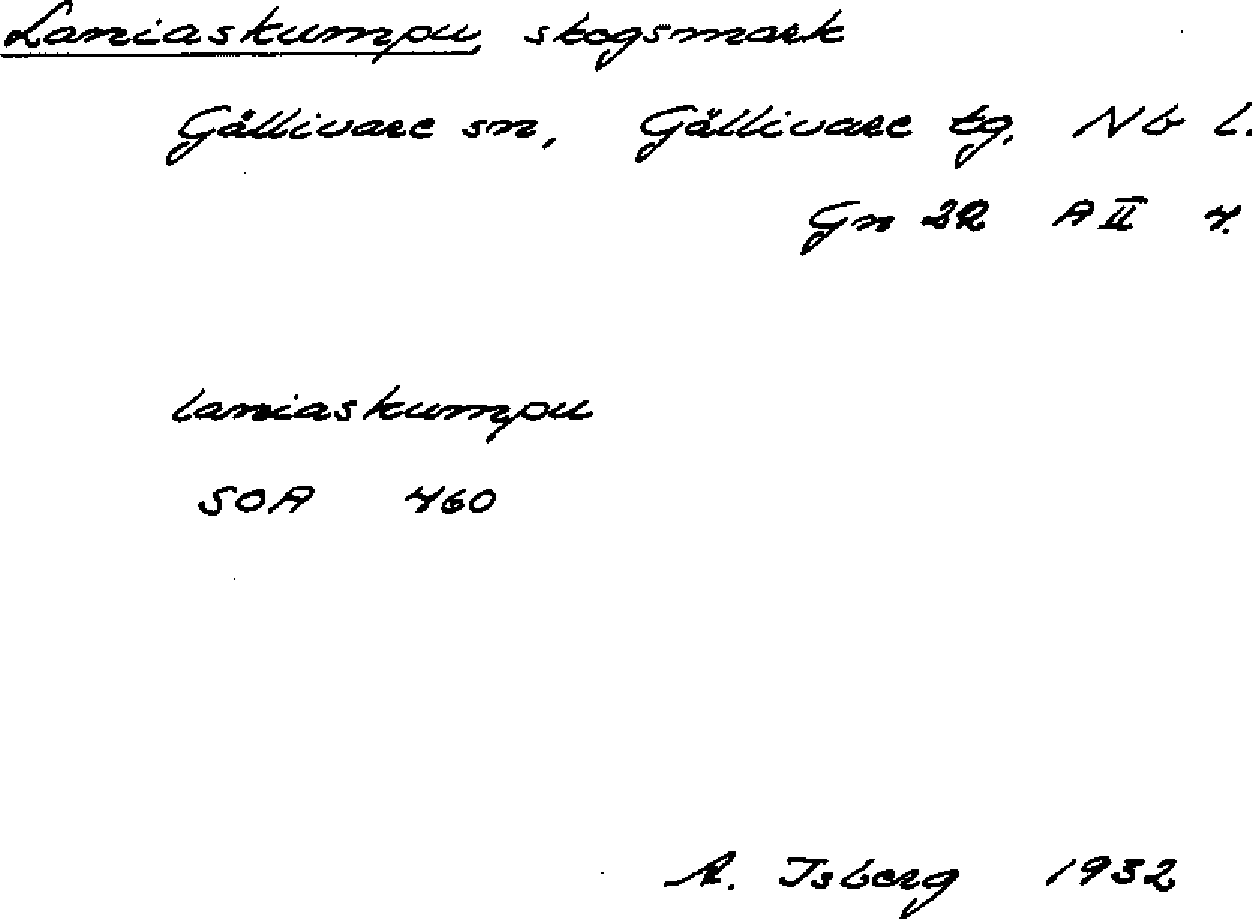 Laniaskumpu, skogsmark
Gällivare sn, Gällivare tg, Nb l.
Gn 32 A II 4.
laniaskumpu
SOA 460
A. Isberg 1932